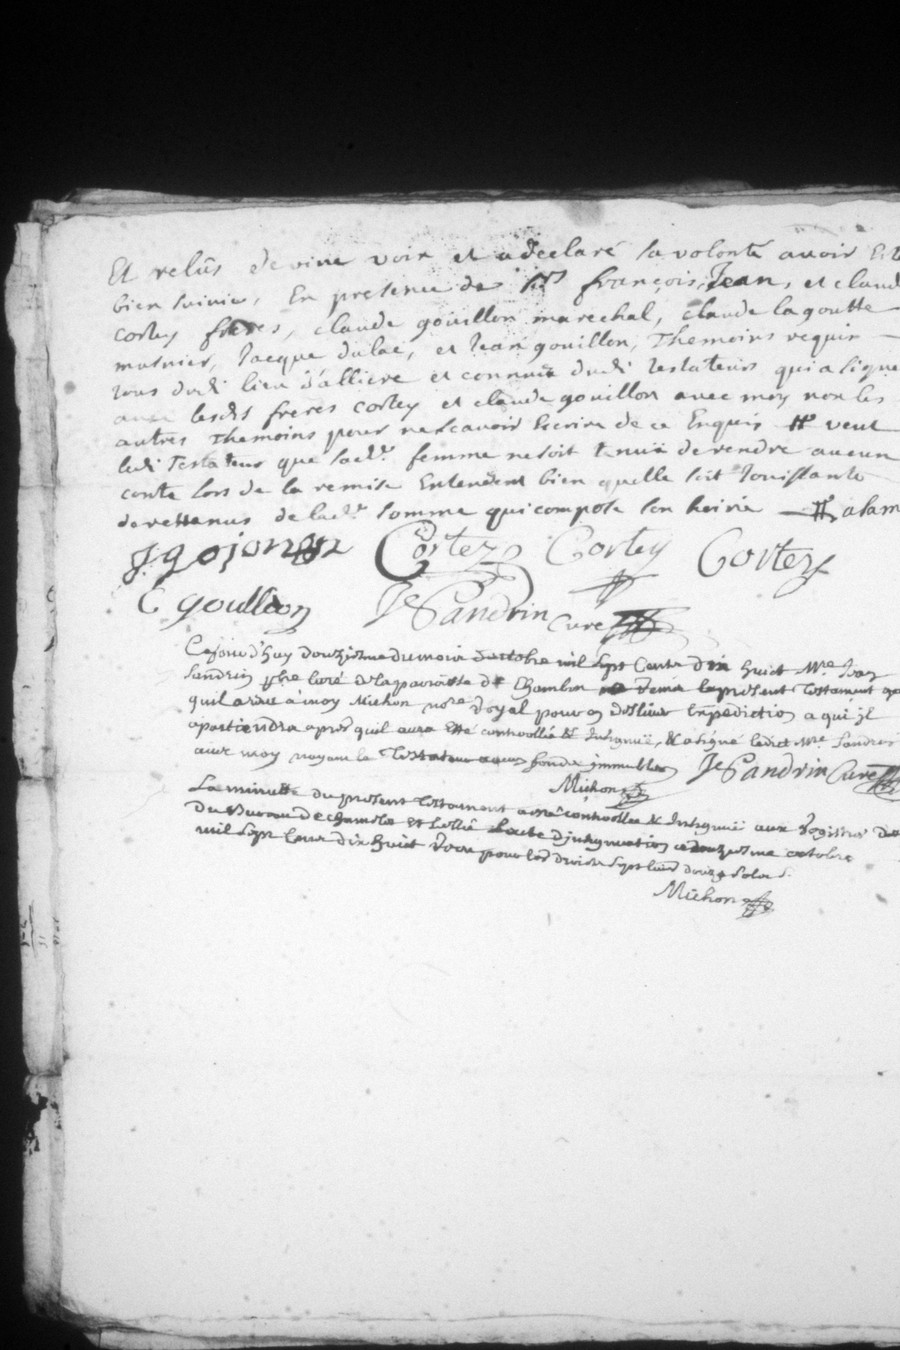 Et relûs de vive voix et a declaré sa volonté avoir Esté
bien suivie, En presence de Srs françois, Jean, et claude
Cortey freres, claude gouillon marechal, claude lagoutte
musnier, Jacque dulac, et Jean gouillon, Themoins requis
tous dudi lieu d'alliere et connuës dudi Testateurs qui a signé
avec lesdis freres Cortey et claude gouillon avec moy non les
autres Themoins pour ne scavoir Escrire de ce Enquis # veut
ledi Testateur que sadte femme ne soit tenuë de rendre aucun
conte lors de la remise Entendent bien quelle soit Jouissante
de revenus de ladte somme qui compose son heirie
Cortey Cortey Cortey
C gouillon Je Sandrin Curé
Cejourd'huy douziesme du mois d'octobre mil sept Cents dix huict Mre Jean
Sandrin ptre curé de la paroisse de Chambon a remis le present Testament
à moy Michon nore Royal pour en deslivrer Expedition a qui il
apartiendra apres quil aura Esté controollé & Insinuë, & a signé ledict Mre Sandrin
avec moy noyant le Testateur aucuns fonds immeubles Je Sandrin Curé
Michon
La minutte du present Testament a esté controollée & Insinuëe aux Registres
du Bureau de & d'insinuation ce douziesme octobre
mil sept Cent dix huict Receu pour les droicts sept livres douze sols
Michon